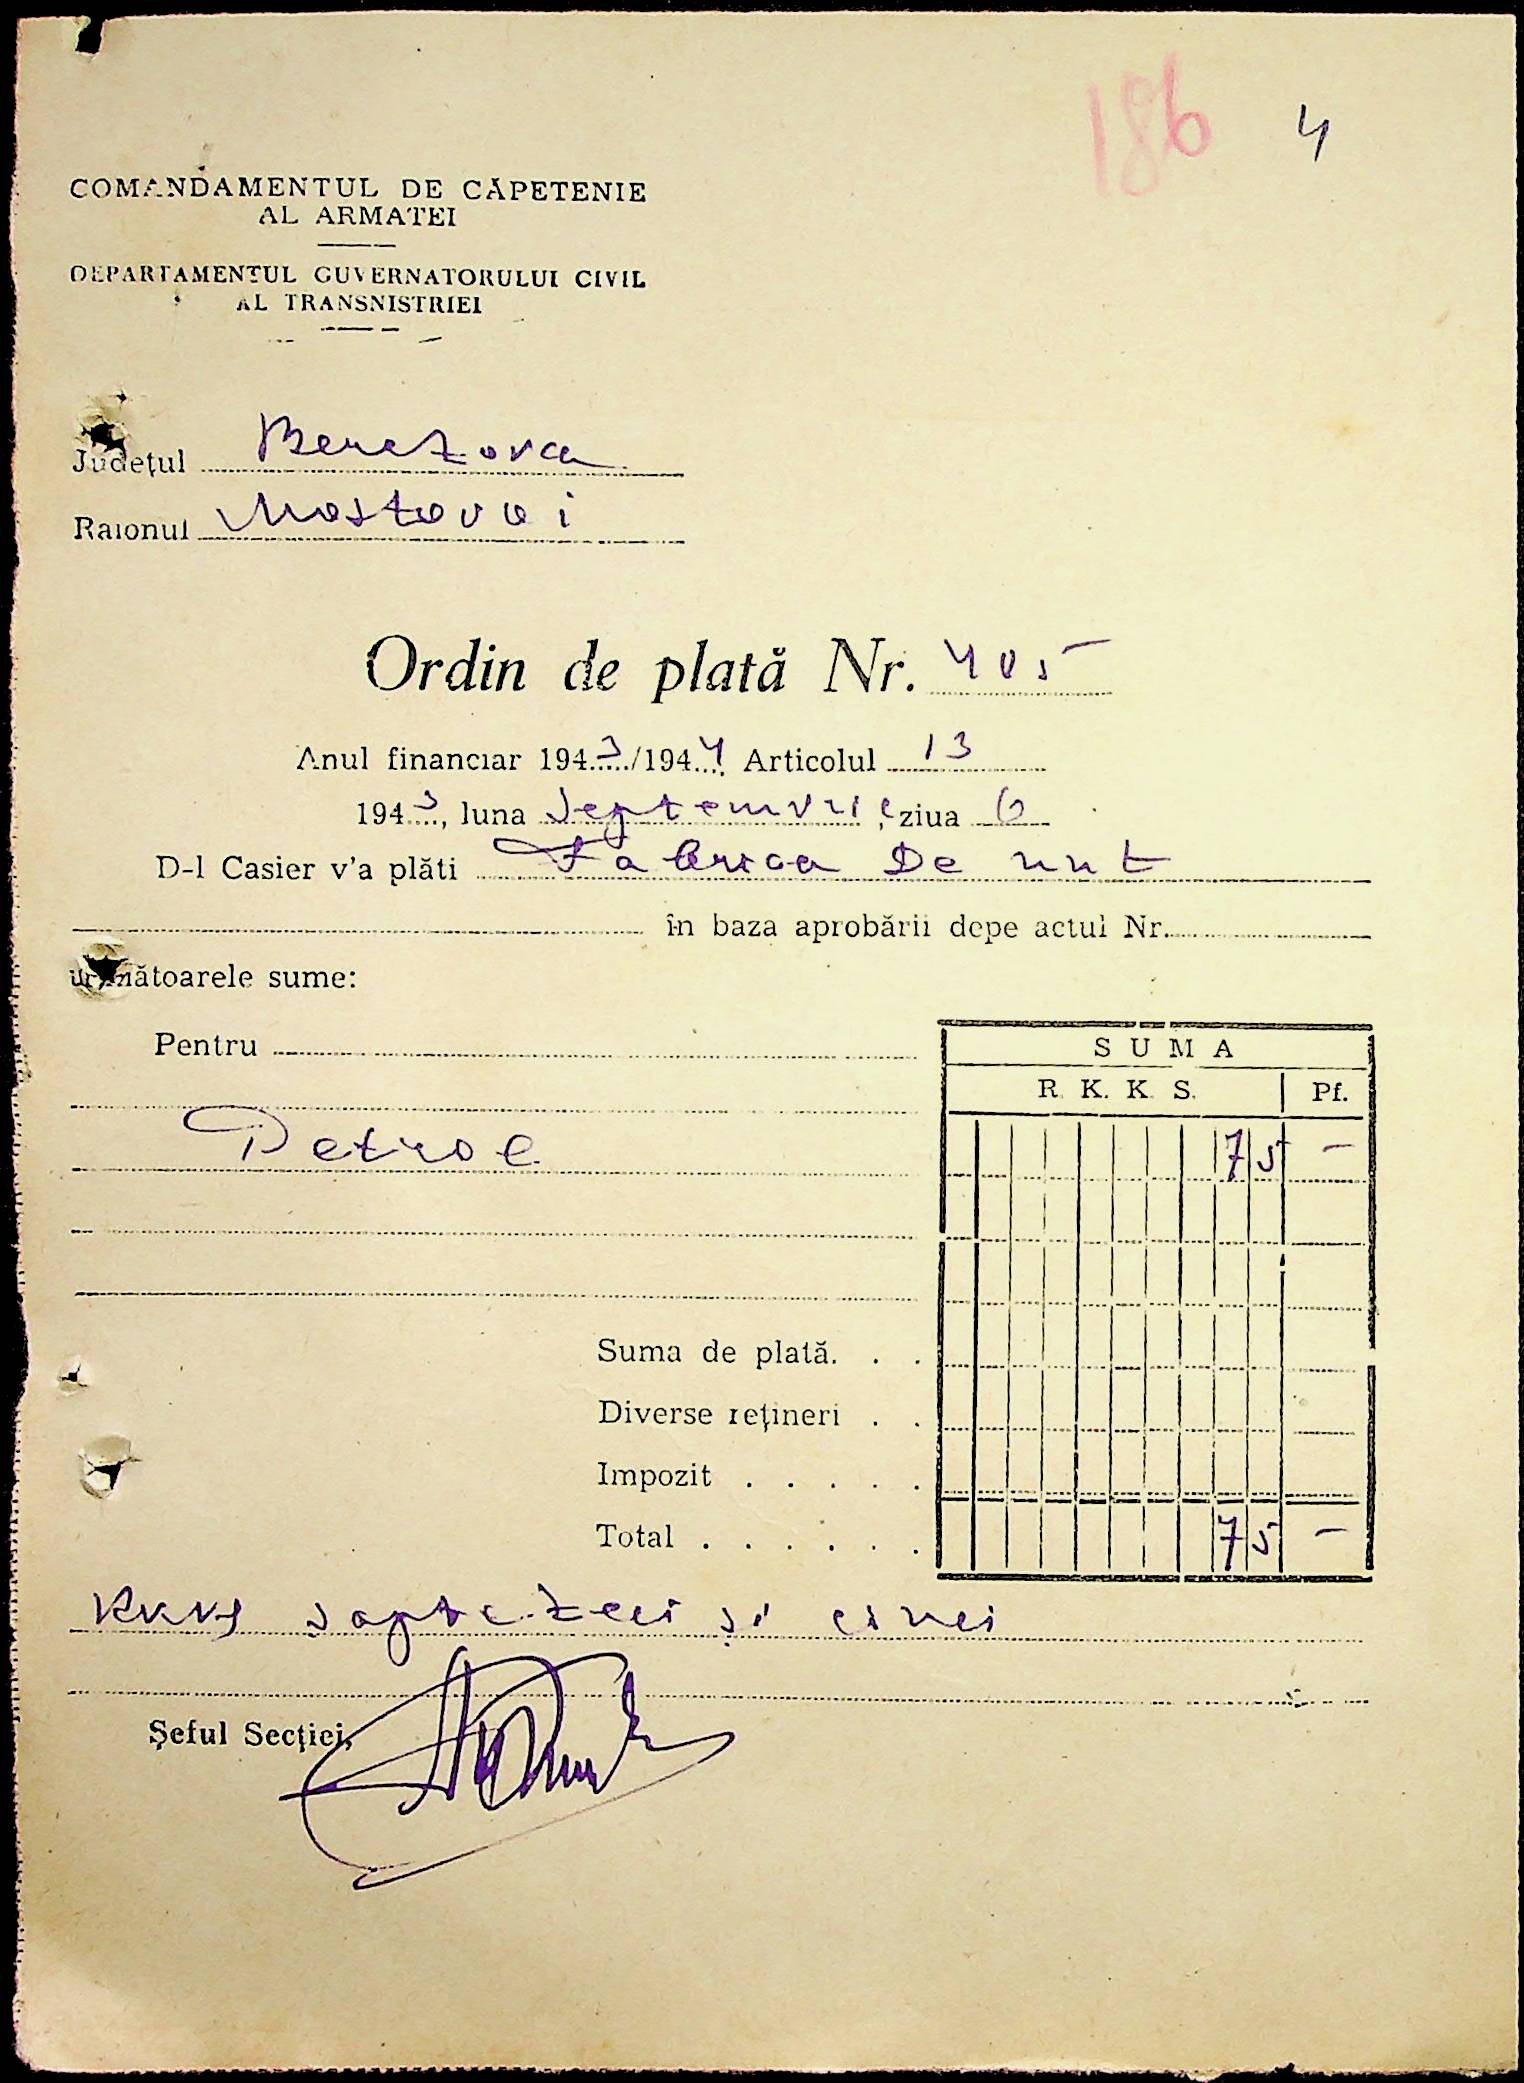 186 4
COMANDAMENTUL DE CĂPETENIE
AL ARMATEI
DEPARTAMENTUL GUVERNATORULUI CIVIL
AL TRANSNISTRIEI
Județul Berezovca
Raionul Mostovoi
Ordin de plată Nr. 405
Anul financiar 1943/1944 Articolul 13
1943, luna Septemvrie, ziua 6
D-l Casier v'a plăti Fabrica De unt
în baza aprobării depe actul Nr.
următoarele sume:
Pentru
SUMA
R. K. K. S. Pf.
Petrol 75 –
Suma de plată. . .
Diverse rețineri . .
Impozit . . . . .
Total . . . . . . 75 –
RKKS șapte zeci și cinci
Șeful Secției,